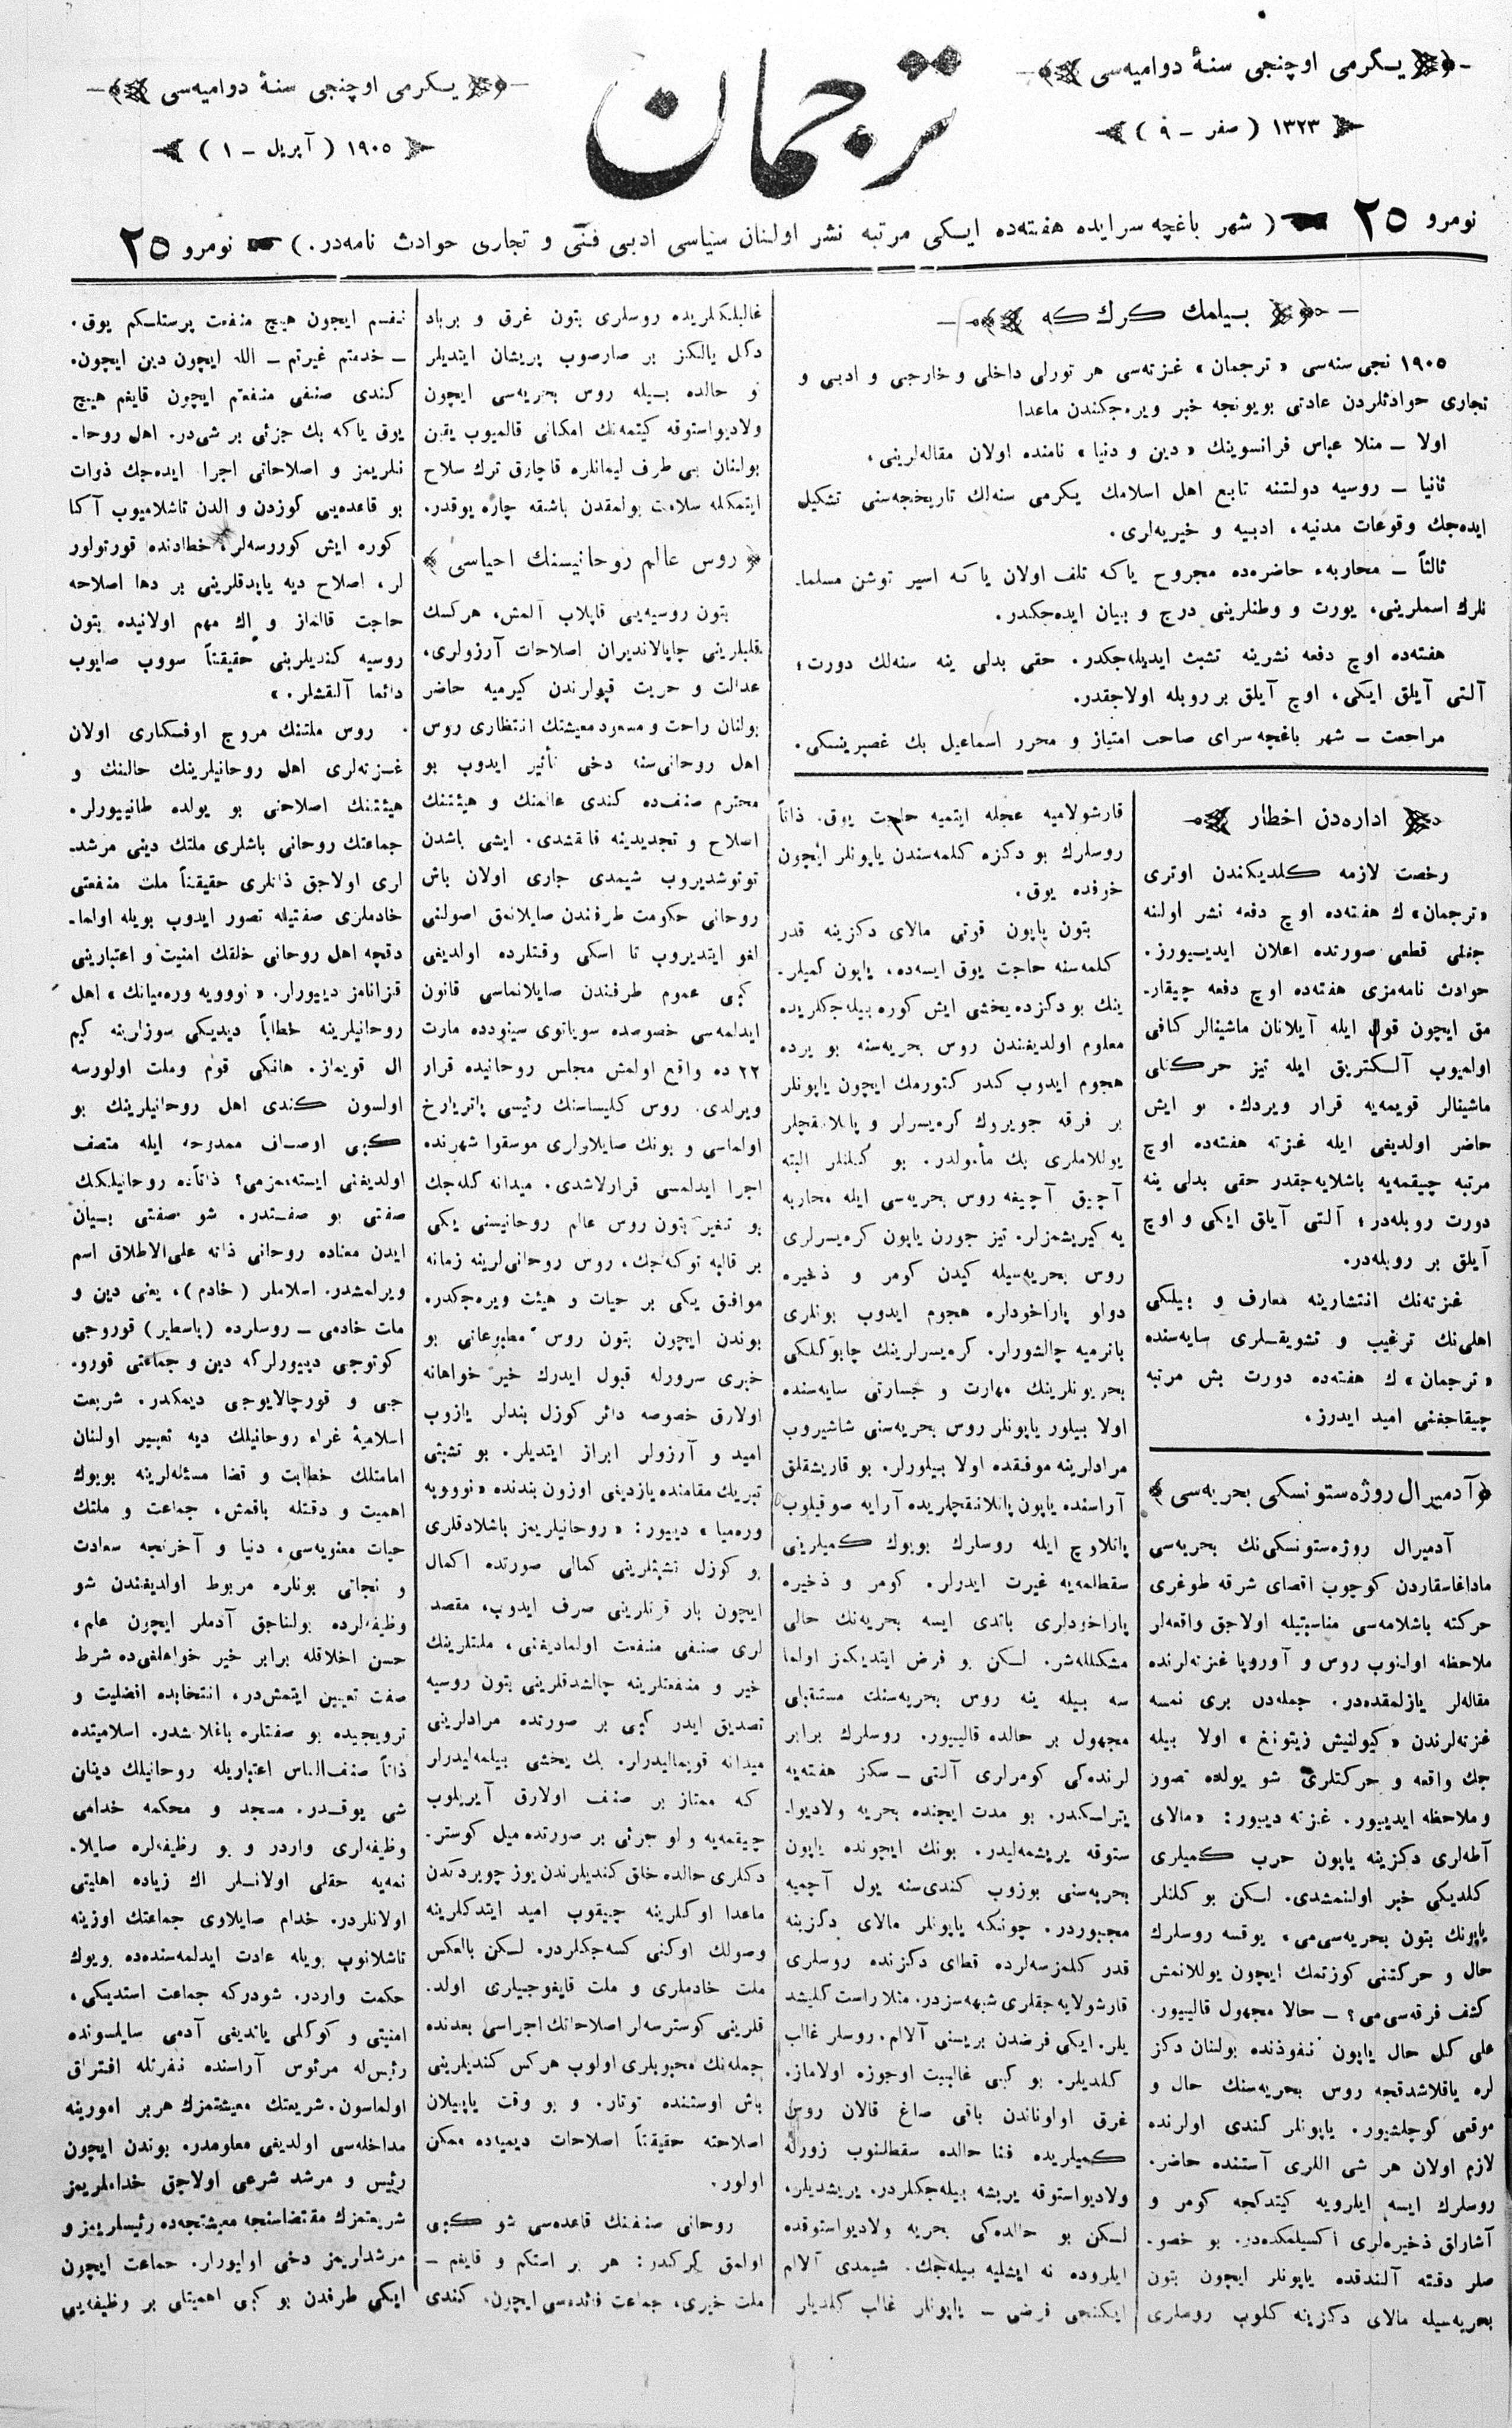 يكرمی اوچنجی سنۀ دواميه‌سی
١٣٢٣ ( صفر ـ ٩ )
ترجمان
يكرمی اوچنجی سنۀ دواميه‌سی
١٩٠٥ ( آپريل ـ ١ )
نومرو ٢٥ ( شهر باغچه سرايده هفته‌ده ايكی مرتبه نشر اولنان سياسی ادبی فنّی و تجاری حوادث نامه‌در. ) نومرو ٢٥
بيلمك كرك كه
١٩٠٥ نجی سنه‌سی « ترجمان » غزته‌سی هر تورلی داخلی و خارجی و ادبی و
تجاری حوادثلردن عادتی بويونجه خبر ويره‌جكندن ماعدا
اولا ـ منلا عباس فرانسوينك « دين و دنيا » نامنده اولان مقاله‌لرينی،
ثانيا ـ روسيه دولتنه تابع اهل اسلامك يكرمی سنه‌لك تاريخجه‌سنی تشكيل
ايده‌جك وقوعات مدنيه، ادبيه و خيريه‌لری.
ثالثاً ـ محاربهء حاضره‌ده مجروح ياكه تلف اولان ياكه اسير توشن مسلما-
نلرك اسملرينی، يورت و وطنلرينی درج و بيان ايده‌جكدر.
هفته‌ده اوچ دفعه نشرينه تشبث ايديله‌جكدر. حقی بدلی ينه سنه‌لك دورت؛
آلتی آيلق ايكی، اوچ آيلق بر روبله اولاجقدر.
مراجعت ـ شهر باغچه سرای صاحب امتياز و محرر اسماعيل بك غصپرينسكی.
اداره‌دن اخطار
رخصت لازمه كلديكندن اوتری
«ترجمان» ك هفته‌ده اوچ دفعه نشر اولنه
جغنی قطعی صورتده اعلان ايديیورز.
حوادث نامه‌مزی هفته‌ده اوچ دفعه چيقار-
مق ايچون قول ايله آيلانان ماشينالر كافی
اولميوب آلكتريق ايله تيز حركتلی
ماشينالر قويمه‌يه قرار ويردك. بو ايش
حاضر اولديغی ايله غزته هفته‌ده اوچ
مرتبه چيقمه‌يه باشلايه‌جقدر حقی بدلی ينه
دورت روبله‌در؛ آلتی آيلق ايكی و اوچ
آيلق بر روبله‌در.
غزته‌نك انتشارينه معارف و بيلكی
اهلی‌نك ترغيب و تشويقلری سايه‌سنده
«ترجمان» ك هفته‌ده دورت بش مرتبه
چيقاجغنی اميد ايدرز.
﴿ آدميرال روژه‌ستونسكی بحريه‌سی ﴾
آدميرال روژه‌ستونسكی‌نك بحريه‌سی
ماداغاسقاردن كوچوب اقصای شرقه طوغری
حركته باشلامه‌سی مناسبتيله اولاجق واقعه‌لر
ملاحظه اولنوب روس و آوروپا غزته‌لرنده
مقاله‌لر يازلمقده‌در. جمله‌دن بری نمسه
غزته‌لرندن « كيولنيش زيتونغ » اولا بيله
جك واقعه و حركتلری شو يولده تصور
و ملاحظه ايديیور. غزته ديیور: «مالای
آطه‌لری دكزينه ياپون حرب كميلری
كلديكی خبر اولنمشدی. لكن بو كلنلر
ياپونك بتون بحريه‌سی‌می، يوقسه روسلرك
حال و حركتنی كوزتمك ايچون يوللانمش
كشف فرقه‌سی‌می؟ ـ حالا مجهول قاليیور.
علی كل حال ياپون نفوذنده بولنان دكز
لره ياقلاشدقجه روس بحريه‌سنك حال و
موقعی كوجلشیور. ياپونلر كندی اولرنده
لازم اولان هر شی اللری آستنده حاضر.
روسلرك ايسه ايلرويه كيتدكجه كومر و
آشاراق ذخيره‌لری اكسيلمكده‌در. بو خصو-
صلر دقته آلندقده ياپونلر ايچون بتون
بحريه‌سيله مالای دكزينه كلوب روسلری
قارشولاميه عجله ايتميه حاجت يوق. ذاتاً
روسلرك بو دكزه كلمه‌سندن ياپونلر ايچون
خوفده يوق.
بتون ياپون قوتی مالای دكزينه قدر
كلمه‌سنه حاجت يوق ايسه‌ده، ياپون كميلر-
ينك بو دكزده يخشی ايش كوره بيله‌جكلريده
معلوم اولديغندن روس بحريه‌سنه بو يرده
هجوم ايدوب كدر كتورمك ايچون ياپونلر
بر فرقه جويروك كره‌يسرلر و پالانقچلر
يوللاملری بك مأمولدر. بو كلنلر البته
آچيق آچيغه روس بحريه‌سی ايله محاربه
يه كيريشمزلر. تيز جورن ياپون كره‌يسرلری
روس بحريه‌سيله كيدن كومر و ذخيره
دولو پاراخودلره هجوم ايدوب بونلری
باترميه چالشورلر. كره‌يسرلرينك چابوكلكی
بحريونلرينك مهارت و جسارتی سايه‌سنده
اولا بيلور ياپونلر روس بحريه‌سنی شاشيروب
مرادلرينه موفقده اولا بيلورلر. بو قاريشقلق
آراسنده ياپون پالانقچلريده آرايه صوقيلوب
پانلاوچ ايله روسلرك بويوك كميلرينی
سقطلمه‌يه غيرت ايدرلر. كومر و ذخيره
پاراخودلری باتدی ايسه بحريه‌نك حالی
مشكللشر. لكن بو فرض ايتديكمز اولما
سه بيله ينه روس بحريه‌سنك مستقبلی
مجهول بر حالده قاليیور. روسلرك برابر
لرنده‌كی كومرلری آلتی ـ سكز هفته‌يه
يتراسكدر. بو مدت ايچنده بحريه ولاديوا-
ستوقه يريشمه‌ليدر. بونك ايچونده ياپون
بحريه‌سنی بوزوب كندی‌سنه يول آچميه
مجبوردر. چونكه ياپونلر مالای دكزينه
قدر كلمزسه‌لرده قطای دكزنده روسلری
قارشولايه‌جقلری شبهه‌سزدر. مثلا راست كليشد
يلر. ايكی فرضدن بريسنی آلالم. روسلر غالب
كلديلر. بو كبی غالبيت اوجوزه اولاماز.
غرق اولوناندن باقی صاغ قالان روس
كميلريده فنا حالده سقطلنوب زورله
ولاديواستوقه يريشه بيله‌جكلردر. يريشديلر،
لكن بو حالده‌كی بحريه ولاديواستوقده
ايلروده نه ايشليه بيله‌جك. شيمدی آلالم
ايكنجی فرضی ـ ياپونلر غالب كلديلر
غالبلكلريده روسلری بتون غرق و برباد
دكل يالكز بر صارصوب پريشان ايتديلر
و حالده بيله روس بحريه‌سی ايچون
ولاديواستوقه كيتمه‌نك امكانی قالميوب يقين
بولنان بی طرف ليمانلره قاچارق ترك سلاح
ايتمكله سلامت بولمقدن باشقه چاره يوقدر.
﴿ روس عالم روحانيسنك احياسی ﴾
بتون روسيه‌يی قاپلاب آلمش، هركسك
قلبلرينی چاپالانديران اصلاحات آرزولری،
عدالت و حريت قپولرندن كيرميه حاضر
بولنان راحت و مسعود معيشتك انتظاری روس
اهل روحانی‌سنه دخی تأثير ايدوب بو
محترم صنف‌ده كندی عالمنك و هيئتنك
اصلاح و تجديدينه قالقشدی. ايشی باشدن
توتوشديروب شيمدی جاری اولان باش
روحانی حكومت طرفندن صايلانمق اصولنی
لغو ايتديروب تا اسكی وقتلرده اولديغی
كبی عموم طرفندن صايلانماسی قانون
ايدلمه‌سی خصوصده سوياتوی سينودده مارت
٢٢ ده واقع اولمش مجلس روحانيده قرار
ويرلدی. روس كليساسنك رئيسی پاتريارخ
اولماسی و بونك صايلاولری موسقوا شهرنده
اجرا ايدلمسی قرارلاشدی. ميدانه كله‌جك
بو تغير بتون روس عالم روحانيسنی يكی
بر قالبه توكه‌جك، روس روحانی‌لرينه زمانه
موافق يكی بر حيات و هيئت ويره‌جكدر.
بوندن ايچون بتون روس مطبوعاتی بو
خبری سرورله قبول ايدرك خير خواهانه
اولارق خصوصه دائر كوزل بندلر يازوب
اميد و آرزولر ابراز ايتديلر. بو تشبثی
تبريك مقامنده يازديغی اوزون بندنده «نوويه
وره‌ميا» ديیور: «روحانيلريمز باشلادقلری
بو كوزل تشبثلرينی كمالی صورتده اكمال
ايچون بار قوتلرينی صرف ايدوب، مقصد
لری صنفی منفعت اولماديغنی، ملتلرينك
خير و منفعتلرينه چالشدقلرينی بتون روسيه
تصديق ايدر كبی بر صورتده مرادلرينی
ميدانه قويماليدرلر. بك يخشی بيلمه‌ليدرلر
كه ممتاز بر صنف اولارق آيريلوب
چيقمه‌يه ولو جزئی بر صورتده ميل كوستر-
دكلری حالده خلق كنديلرندن يوز چويردكدن
ماعدا اوكلرينه چيقوب اميد ايتدكلرينه
وصولك اوكنی كسه‌جكلردر. لكن بالعكس
ملت خادملری و ملت قايغوجيلری اولد-
قلرينی كوسترسه‌لر اصلاحاتك اجراسی بعدنده
جمله‌نك محبوبلری اولوب هركس كنديلرينی
باش اوستنده توتار. و بو وقت ياپيلان
اصلاحته حقيقتاً اصلاحات ديميه‌ده ممكن
اولور.
روحانی صنفنك قاعده‌سی شو كبی
اولمق كركدر: هر بر استكم و قايغم ـ
ملت خيری، جماعت فائده‌سی ايچون، كندی
نفسم ايچون هيچ منفعت پرستلكم يوق.
ـ خدمتم غيرتم ـ الله ايچون دين ايچون.
كندی صنفی منفعتم ايچون قايغم هيچ
يوق ياكه بك جزئی بر شی‌در. اهل روحا-
نلريمز و اصلاحاتی اجرا ايده‌جك ذوات
بو قاعده‌يی كوزدن و الدن تاشلاميوب آكا
كوره ايش كوررسه‌لر، خطادنده قورتولور
لر، اصلاح ديه ياپدقلرينی بر دها اصلاحه
حاجت قالماز و اك مهم اولانيده بتون
روسيه كنديلرينی حقيقتاً سووب صايوب
دائما آلقشلر.»
روس ملتنك مروج اوفكاری اولان
غزته‌لری اهل روحانيلرينك حالنك و
هيئتنك اصلاحنی بو يولده طانيیورلر.
جماعتك روحانی باشلری ملتك دينی مرشد-
لری اولاجق ذاتلری حقيقتاً ملت منفعتی
خادملری صفتيله تصور ايدوب بويله اولما-
دقچه اهل روحانی خلقك امنيت و اعتبارينی
قزانامز ديیورلر. «نوويه وره‌ميانك» اهل
روحانيلرينه خطاباً ديديكی سوزلرينه كيم
ال قويماز. هانكی قوم و ملت اولورسه
اولسون كندی اهل روحانيلرينك بو
كبی اوصاف ممدوحه ايله متصف
اولديغنی ايسته‌مزمی؟ ذاتاًده روحانيلكك
صفتی بو صفتدر. شو صفتی بيان
ايدن معناده روحانی ذاته علی‌الاطلاق اسم
ويرلمشدر. اسلاملر (خادم)، يعنی دين و
ملت خادمی ـ روسلرده (پاسطير) قوروجی
كوتوجی ديیورلركه دين و جماعتی قورو-
جی و قورچالايوجی ديمكدر. شريعت
اسلاميۀ غراء روحانيلك ديه تعبير اولنان
امامتلك خطابت و قضا مسئله‌لرينه بويوك
اهميت و دقتله باقمش، جماعت و ملتك
حيات معنويه‌سی، دنيا و آخرتجه سعادت
و نجاتی بونلره مربوط اولديغندن شو
وظيفه‌لرده بولناجق آدملر ايچون علم،
حسن اخلاقله برابر خير خواهلغی‌ده شرط
صفت تعيين ايتمش‌در، انتخابده افضليت و
ترويجيده بو صفتلره باغلامشدر. اسلاميتده
ذاتاً صنف‌الناس اعتباريله روحانيلك دينان
شی يوقدر. مسجد و محكمه خدامی
وظيفه‌لری واردر و بو وظيفه‌لره صايلا-
نمه‌يه حقلی اولانلر اك زياده اهليتی
اولانلردر. خدام صايلاوی جماعتك اوزينه
تاشلانوب بويله عادت ايدلمه‌سنده‌ده بويوك
حكمت واردر. شودركه جماعت استديكی،
امنيتی و كوكلی ياتديغی آدمی سايلسونده
رئيس‌له مرئوس آراسنده نفرتله افتراق
اولماسون. شريعتك معيشتمزك هربر امورينه
مداخله‌سی اولديغی معلومدر. بوندن ايچون
رئيس و مرشد شرعی اولاجق خداملريمز
شريعتمزك مقتضاسنجه معيشتجه‌ده رئيسلريمز و
مرشدلريمز دخی اوليورلر. جماعت ايچون
ايكی طرفدن بو كبی اهميتلی بر وظيفه‌يی